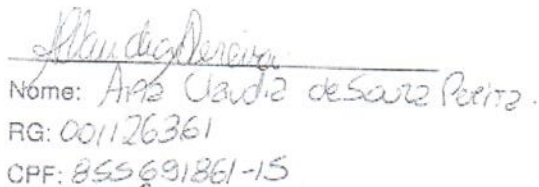 Nome: Ana Claudia de Souza Pereira.
RG: 001126361
CPF: 855691861-15